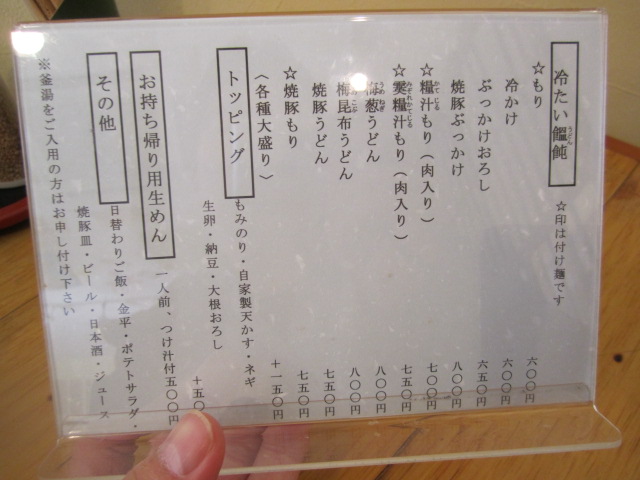 冷たい饂飩
うどん
☆印は付け麺です
☆もり 六〇〇円
冷かけ 六〇〇円
ぶっかけおろし 六五〇円
焼豚ぶっかけ 八〇〇円
☆糧汁もり（肉入り） 七〇〇円
かてじる
☆霙糧汁もり（肉入り） 七五〇円
みぞれかてじる
梅葱うどん 八〇〇円
うめねぎ
梅昆布うどん 八〇〇円
焼豚うどん 七五〇円
☆焼豚もり 七五〇円
〈各種大盛り〉 ＋一五〇円
トッピング
もみのり・自家製天かす・ネギ
生卵・納豆・大根おろし ＋五〇
お持ち帰り用生めん
一人前、つけ汁付五〇〇円
その他
日替わりご飯・金平・ポテトサラダ・
焼豚皿・ビール・日本酒・ジュース
※釜湯をご入用の方はお申し付け下さい